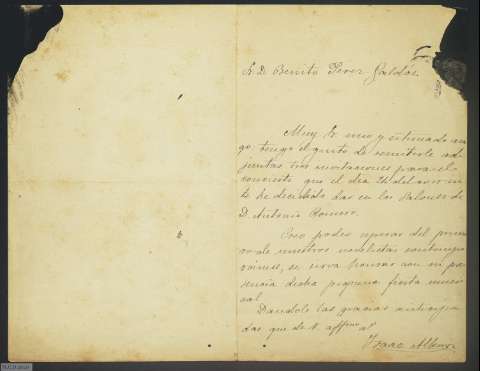 Sr. D. Benito Perez Galdós
Muy Sr. mio y estimado ami
go: tengo el gusto de remitirle ad
juntas, tres invitaciones para el
concierto que el dia 24 del
he decidido dar en los Salones de
D. Antonio Romero.
Creo poder esperar del prime
ro de nuestros novelistas contempo
raneos, se sirva honrar con su pre
sencia dicha pequeña fiesta musi
cal.
Dandole las gracias anticipa
das queda de V. affmo
Isaac Albeniz